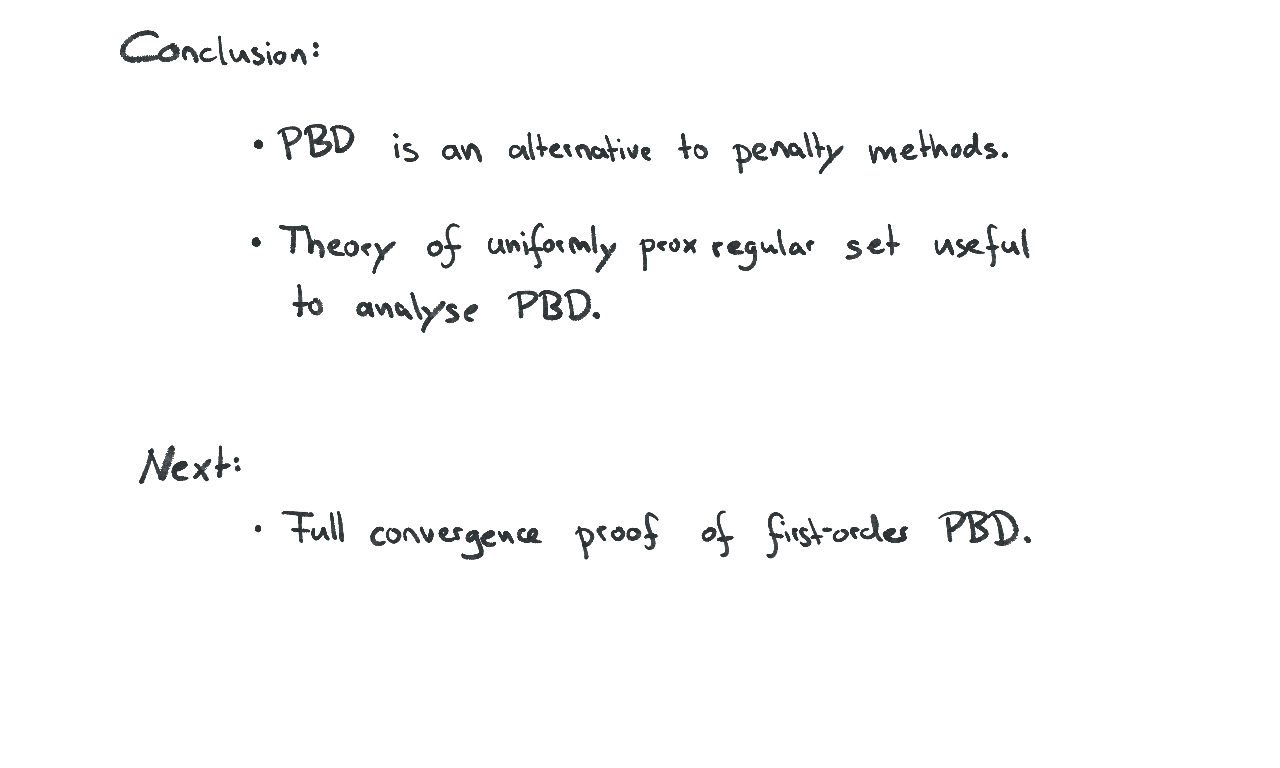 Conclusion:
• PBD is an alternative to penalty methods.
• Theory of uniformly prox regular set useful
to analyse PBD.
Next:
• Full convergence proof of first-order PBD.